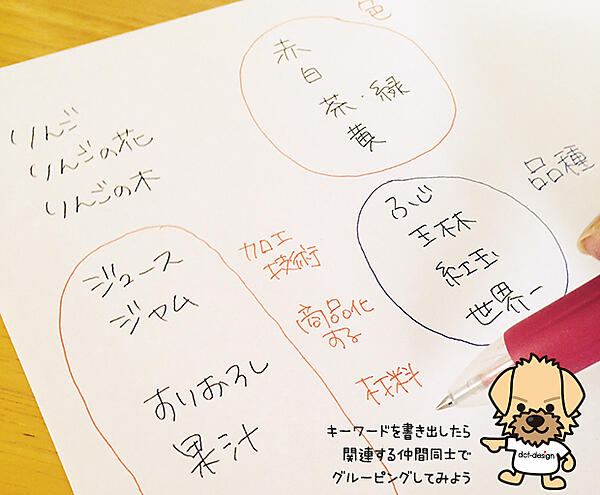 色
赤
白
茶・緑
黄
りんご
りんごの花
りんごの木
品種
ふじ
王林
紅玉
世界一
ジュース
ジャム
すりおろし
果汁
加工
技術
商品化
する
材料
キーワードを書き出したら
関連する仲間同士で
グルーピングしてみよう
dct-design